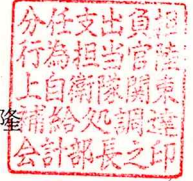 分任支出負担
行為担当官陸
上自衛隊関東
隆
補給処調達
会計部長之印